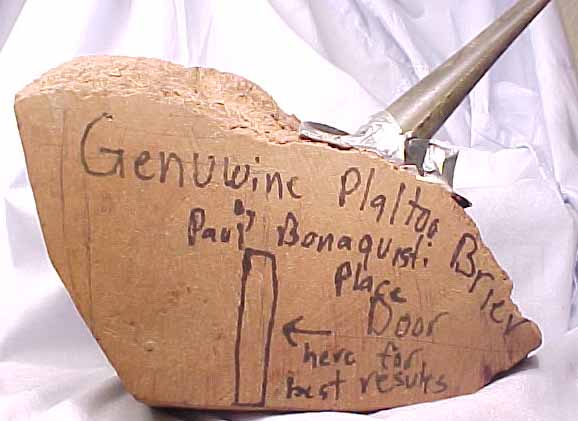 Genuwine Plaltoo Brier
by
Paul Bonaquisti
Place
Door
← here for
best resutes